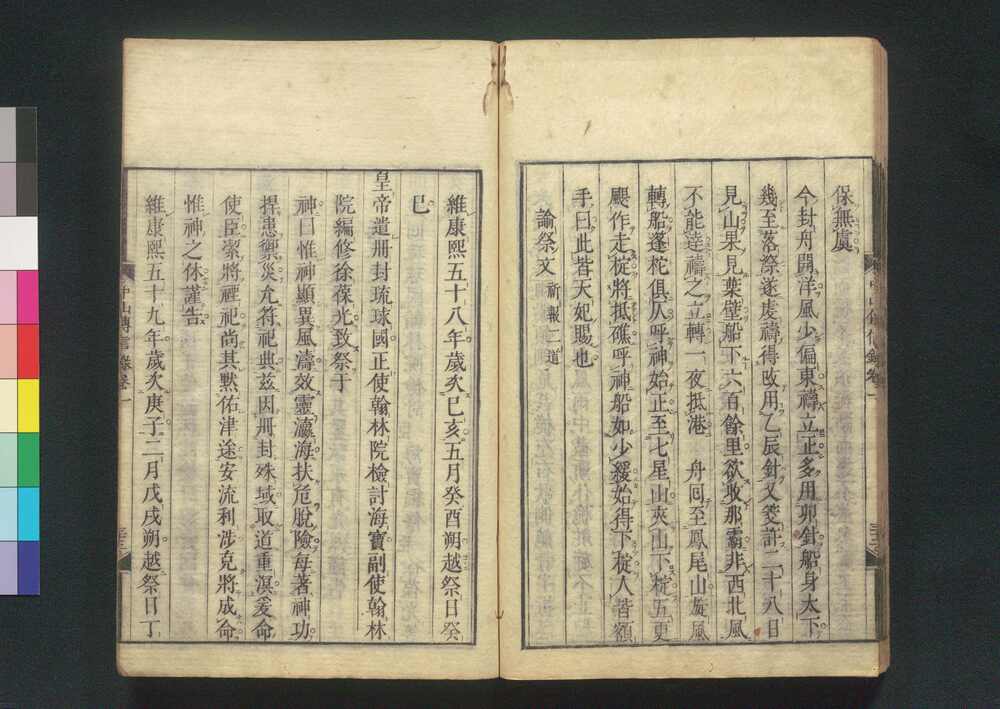 保無虞
今封舟開洋風少偏東禱立正多用卯針船身太下
幾至落漈遂虔禱得改用乙辰針又筊許二十八日
見山果見葉壁船下六百餘里欲收那霸非西北風
不能達禱之立轉一夜抵港　舟囘至鳳尾山旋風
轉船篷柁俱仄呼神始正至七星山夾山下椗五更
颶作走椗將抵礁呼神船如少緩始得下椗人皆額
手曰此皆天妃賜也
諭祭文 祈報二道
維康熙五十八年歲次己亥五月癸酉朔越祭日癸
巳
皇帝遣册封琉球國正使翰林院檢討海寶副使翰林
院編修徐葆光致祭于
神曰惟神顯異風濤效靈瀛海扶危脫險每著神功
捍患禦災允符祀典茲因册封殊域取道重溟爰命
使臣潔將禋祀尚其默佑津途安流利涉克將成命
惟神之休謹告
維康熙五十九年歲次庚子二月戊戌朔越祭日丁
中山傳信錄卷一